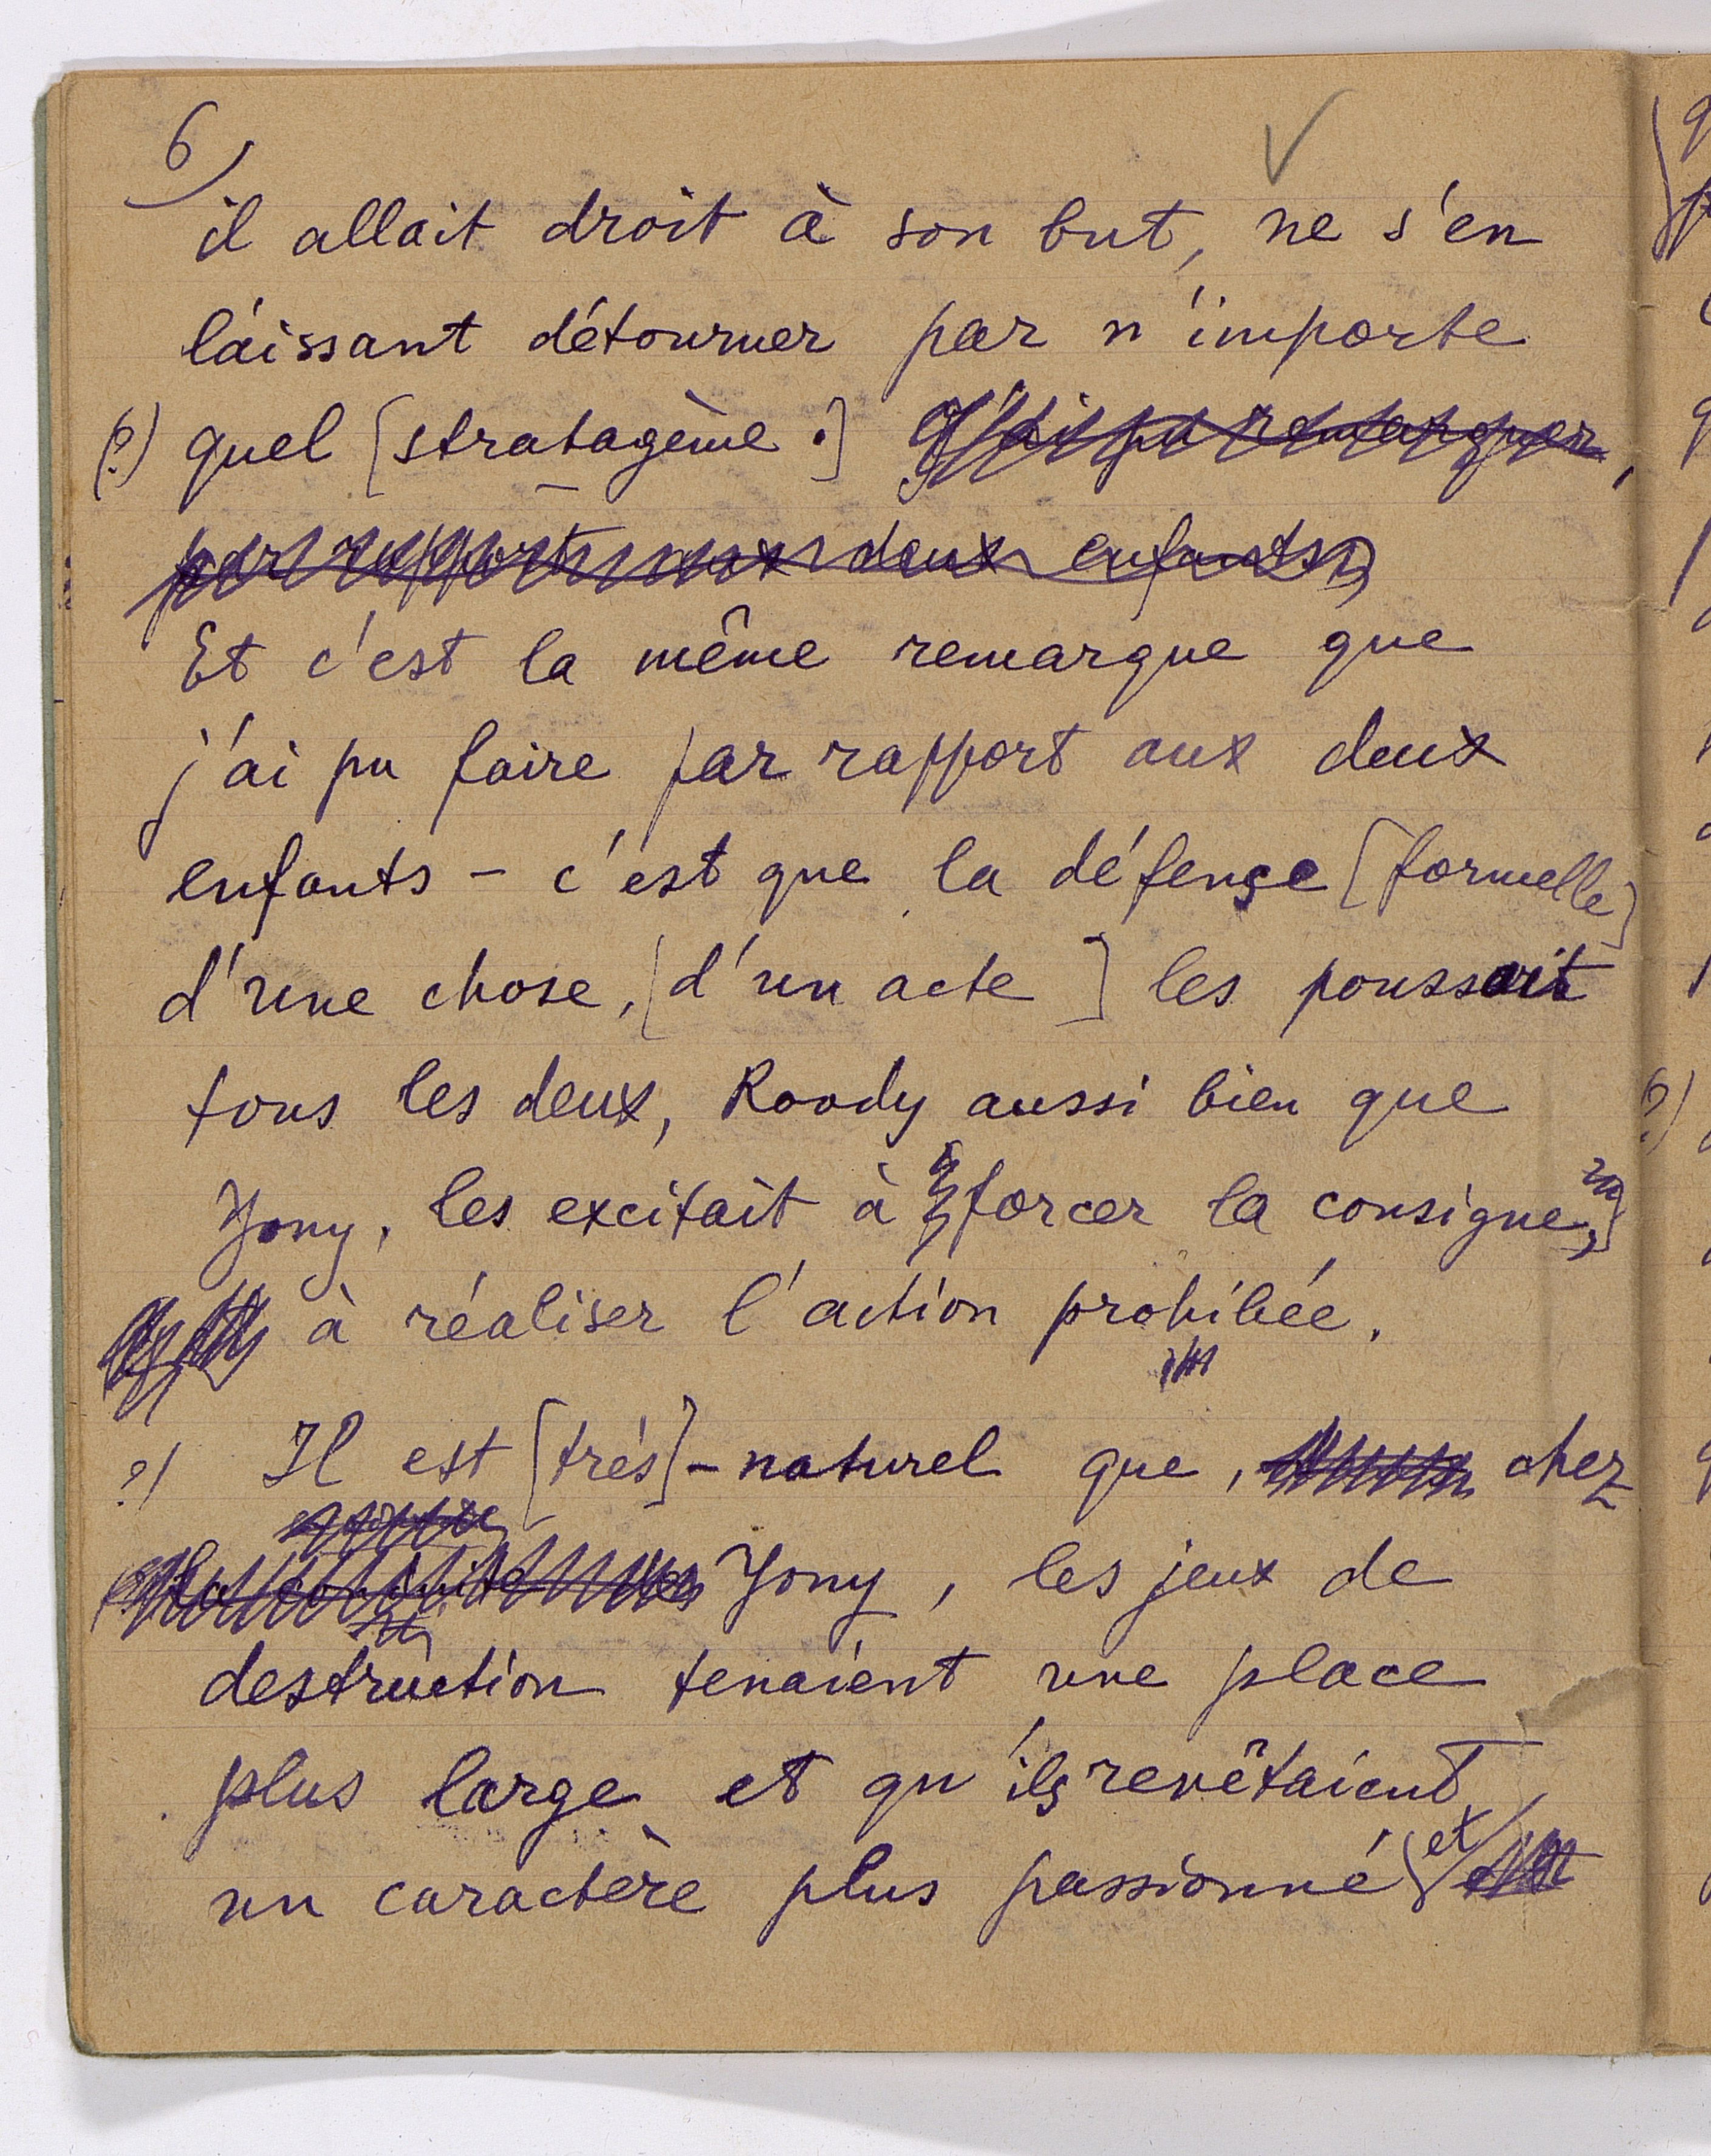 6)
il allait droit à son but, ne s'en
laissant détourner par n'importe
(?) quel [stratagème.] J'ai pu remarquer,
par rapport aux deux enfants,
Et c'est la même remarque que
j'ai pu faire par rapport aux deux
enfants – c'est que la défense [formelle]
d'une chose, [d'un acte] les poussait
tous les deux, Roody aussi bien que
Yony, les excitait à forcer la consigne,]
à réaliser l'action prohibée.
?) Il est [très]-naturel que, chez
Yony, les jeux de
destruction tenaient une place
plus large et qu'ils revêtaient
un caractère plus passionné (et
?)